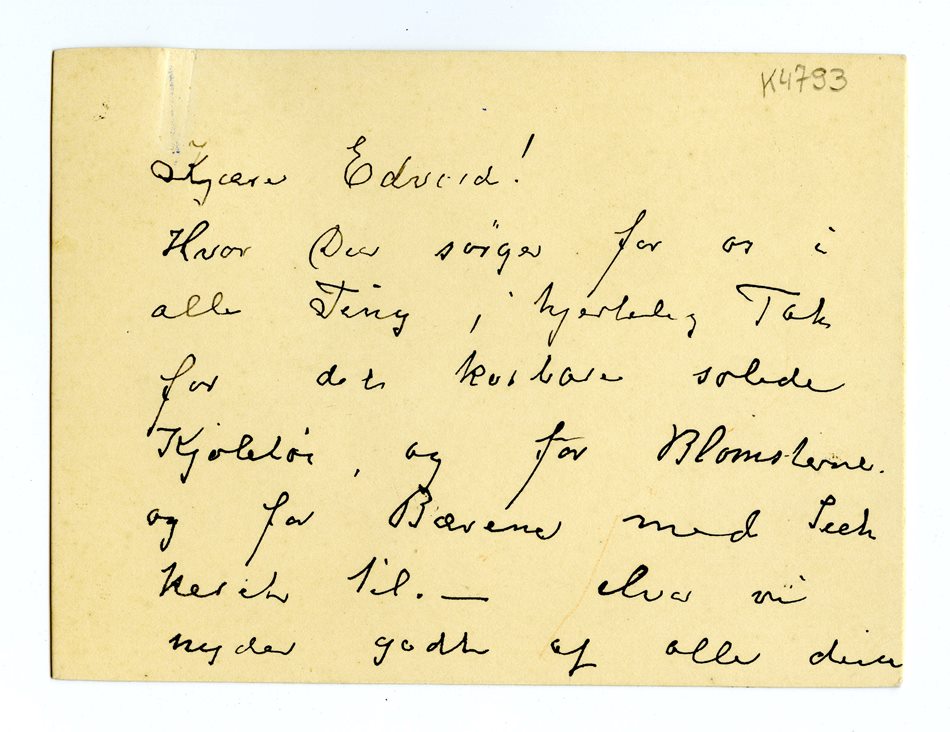 K4793
Kjære Edvard!
Hvor Du sörger for os i
alle Ting, hjertelig Tak
for det kostbare solide
Kjoletöi, og for Blomsterne.
og for Bærene med
til. — Hvor vi
nyder godt af alle dine